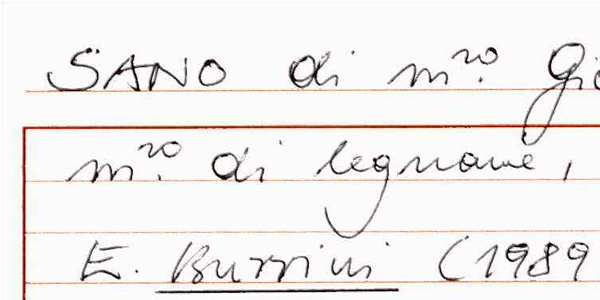 SANO di m.ro Gio
m.ro di legname,
E. Buzzini (1989